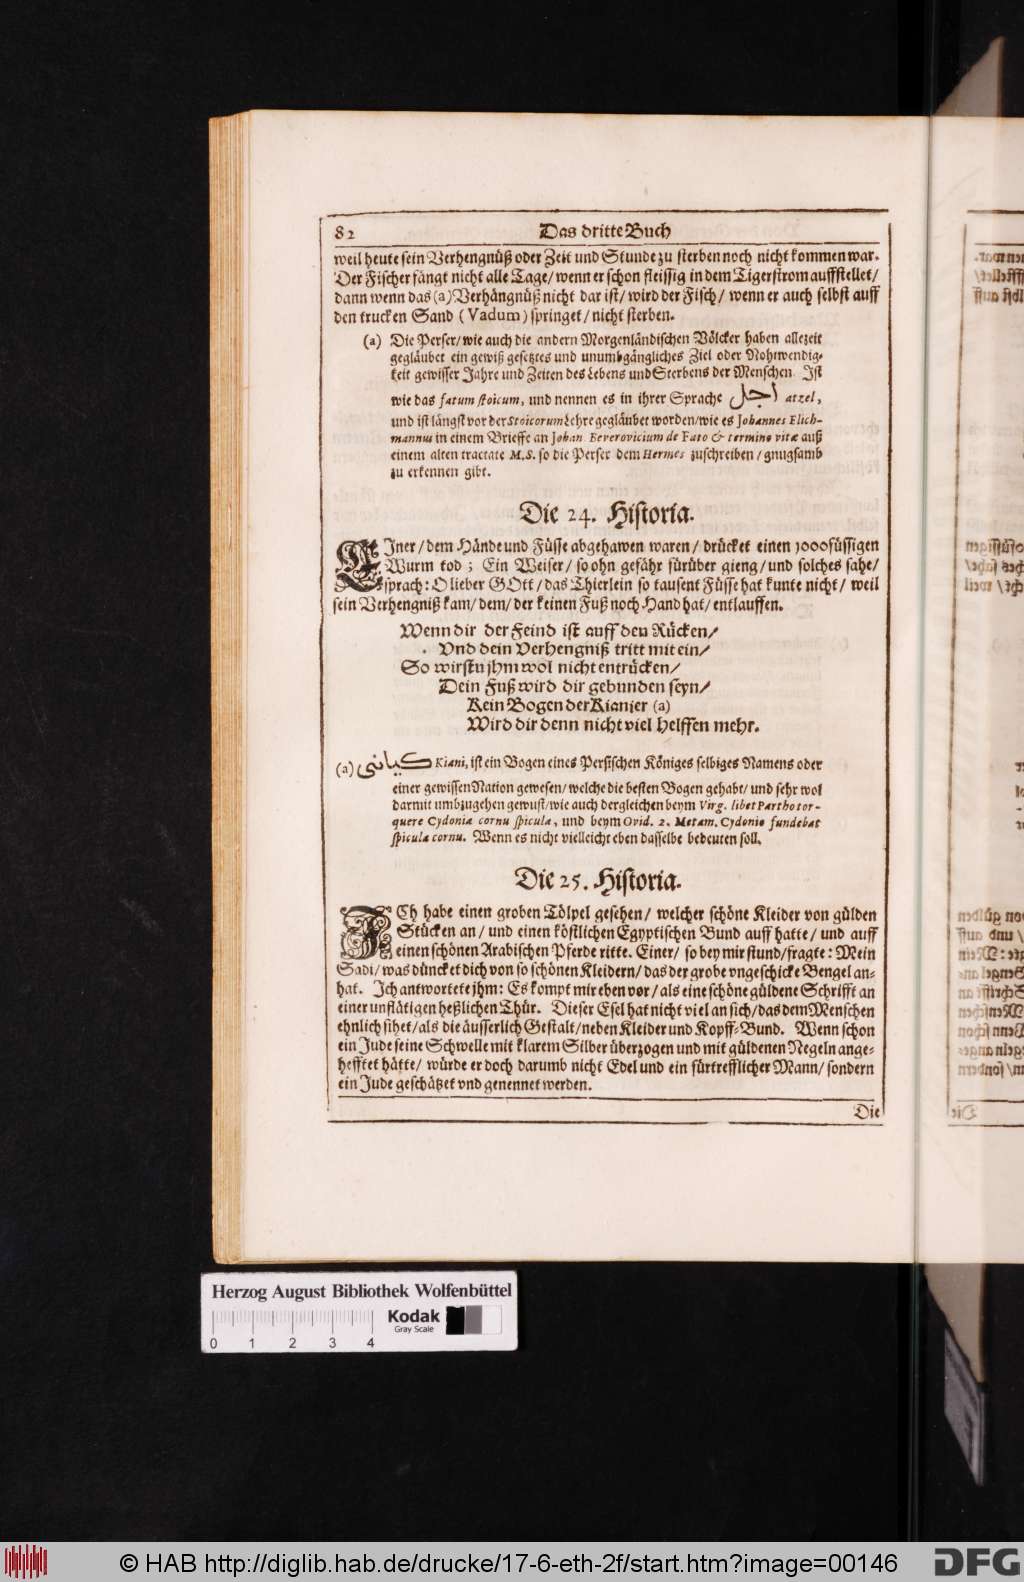 82 Das dritte Buch
weil heute sein Verhengnüß oder Zeit und Stunde zu sterben noch nicht kommen war.
Der Fischer fängt nicht alle Tage/ wenn er schon fleissig in dem Tigerstrom auffstellet/
dann wenn das (a) Verhängnüß nicht dar ist/ wird der Fisch/ wenn er auch selbst auff
den trucken Sand (Vadum) springet/ nicht sterben.
(a) Die Perser/ wie auch die andern Morgenländischen Völcker haben allezeit
gegläubet ein gewiß gesetztes und unumbgängliches Ziel oder Nohtwendig-
keit gewisser Jahre und Zeiten des Lebens und Sterbens der Menschen. Ist
wie das fatum stoicum, und nennen es in ihrer Sprache اجل atzel,
und ist längst vor der Stoicorum Lehre gegläubet worden/ wie es Johannes Elich-
mannus in einem Brieffe an Johan Beverovicium de Fato & termino vitæ auß
einem alten tractate M.S. so die Perser dem Hermes zuschreiben/ gnugsamb
zu erkennen gibt.
Die 24. Historia.
EIner/ dem Hände und Füsse abgehawen waren/ drücket einen 1000füssigen
Wurm tod; Ein Weiser/ so ohn gefähr fürüber gieng/ und solches sahe/
sprach: O lieber GOtt/ das Thierlein so tausent Füsse hat kunte nicht/ weil
sein Verhengniß kam/ dem/ der keinen Fuß noch Hand hat/ entlauffen.
Wenn dir der Feind ist auff den Rücken/
Vnd dein Verhengniß tritt mit ein/
So wirstu jhm wol nicht entrücken/
Dein Fuß wird dir gebunden seyn/
Kein Bogen der Kianier (a)
Wird dir denn nicht viel helffen mehr.
(a) كيانى Kiani, ist ein Bogen eines Persischen Königes selbiges Namens oder
einer gewissen Nation gewesen/ welche die besten Bogen gehabt/ und sehr wol
darmit umbzugehen gewust/ wie auch dergleichen beym Virg. libet Partho tor-
quere Cydonia cornu spicula, und beym Ovid. 2. Metam. Cydonio fundebat
spicula cornu. Wenn es nicht vielleicht eben dasselbe bedeuten soll.
Die 25. Historia.
ICh habe einen groben Tölpel gesehen/ welcher schöne Kleider von gülden
Stücken an/ und einen köstlichen Egyptischen Bund auff hatte/ und auff
einen schönen Arabischen Pferde ritte. Einer/ so bey mir stund/ fragte: Mein
Sadi/ was düncket dich von so schönen Kleidern/ das der grobe vngeschickte Bengel an-
hat. Ich antwortete jhm: Es kompt mir eben vor/ als eine schöne güldene Schrifft an
einer unflätigen heßlichen Thür. Dieser Esel hat nicht viel an sich/ das dem Menschen
ehnlich sihet/ als die äusserlich Gestalt/ neben Kleider und Kopff-Bund. Wenn schon
ein Jude seine Schwelle mit klarem Silber überzogen und mit güldenen Negeln ange-
hefftet hätte/ würde er doch darumb nicht Edel und ein fürtrefflicher Mann/ sondern
ein Jude geschätzet vnd genennet werden.
Die
Herzog August Bibliothek Wolfenbüttel
Kodak
Gray Scale
0 1 2 3 4
© HAB http://diglib.hab.de/drucke/17-6-eth-2f/start.htm?image=00146
DFG